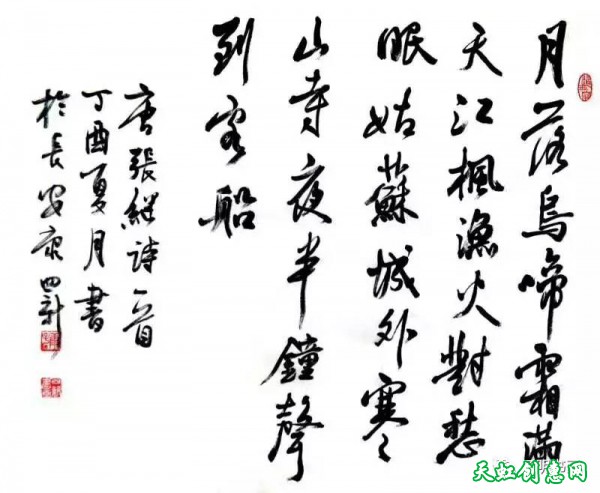 月落烏啼霜滿
天江楓漁火對愁
眠姑蘇城外寒
山寺夜半鐘聲
到客船
唐張継詩一首
丁酉夏月書
於長安康四新
天虹创意网